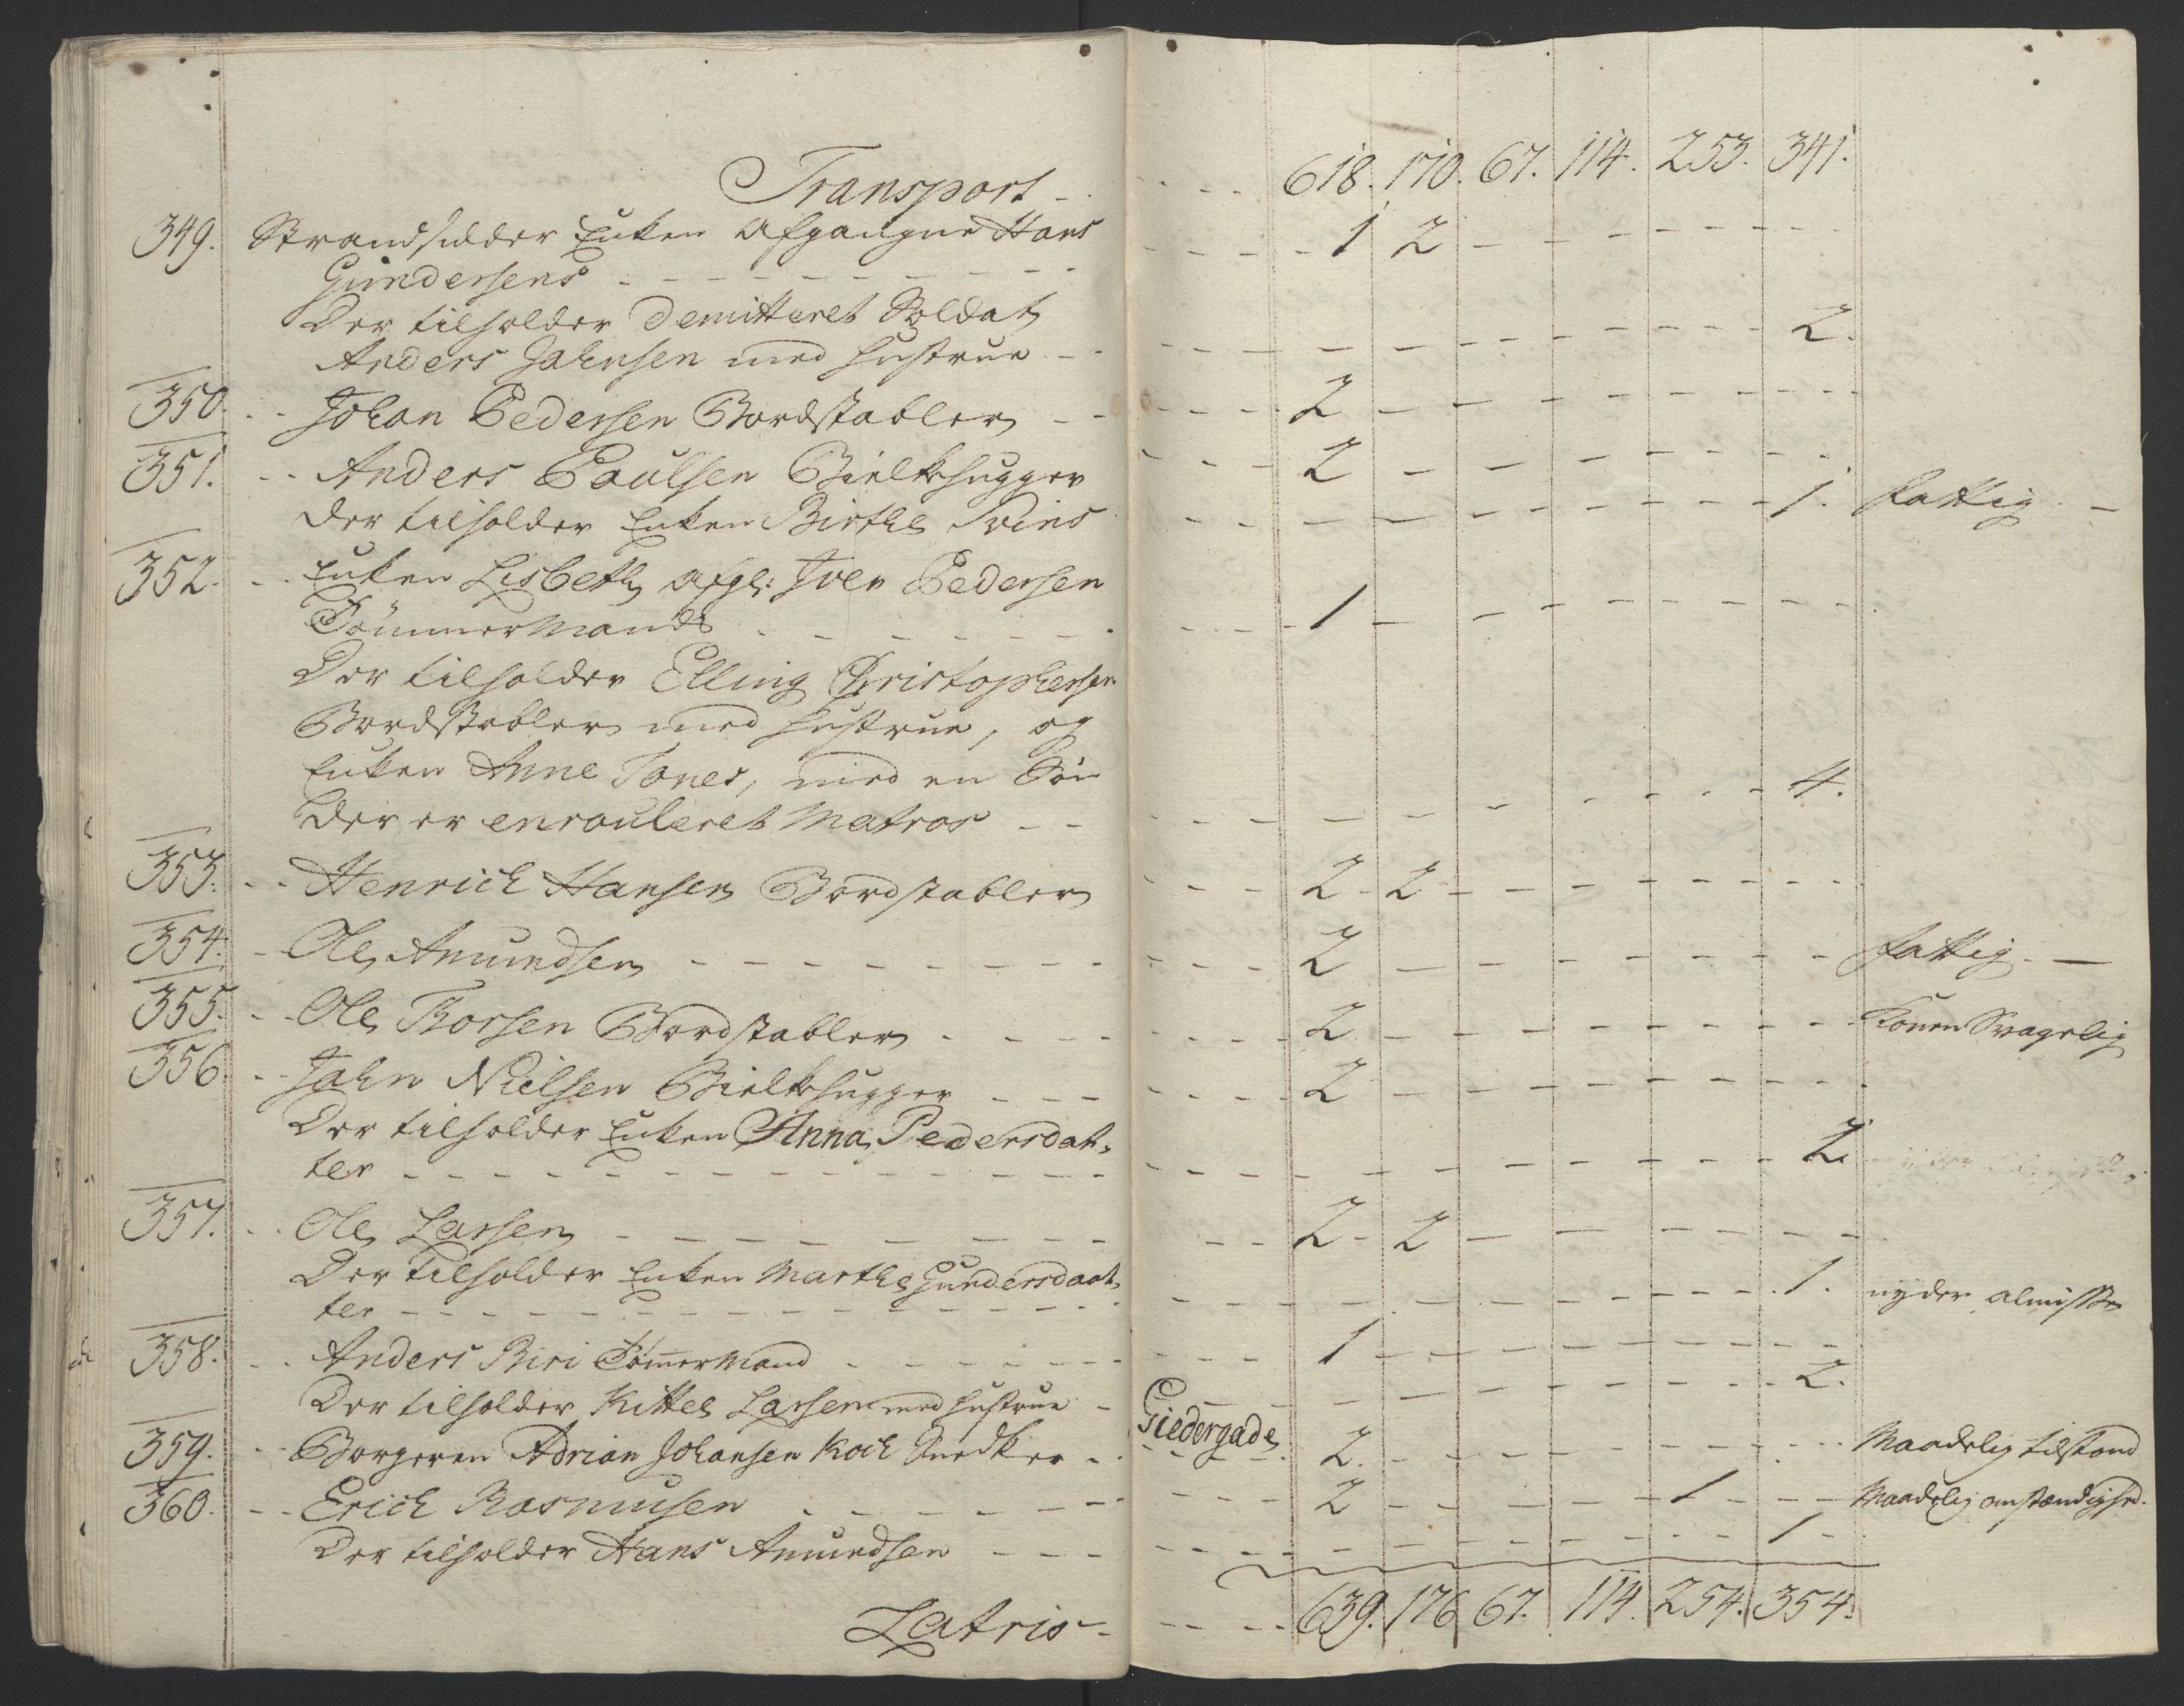 Transport - - - - - 618. 170. 67. 114. 253. 341.
349. Strandsidder Enken Afgangne Hans
Gundersens - - - - 1 2 - - - -
Der tilholder Demitteret Soldat
Anders Jahnsen med Hustrue - - - - 2.
350. Johan Pedersen Bordstabler - - 2 - - - -
351. Anders Paulsen Bielkhugger - - 2 - - - -
der tilholder Enken Birthe - - - - 1. fattig -
352. Enken Lisbeth afg: Iver Pedersen
Tømmermands - - - - 1 - - - -
Der tilholder Elling Christophersen
Bordstabler med Hustrue, og
Enken Anne Tones, med en Søn
der er enrouleret Matros - - - - 4.
353. Henrich Hansen Bordstabler - - 2 - 2 - - - -
354. Ole Amundsen - - - - 2 - - - - fattig. -
355. Ole Thorsen Bordstabler - - - - 2 - - - - Konen Svagelig
356. Jahn Nielsen Bielkhugger - - - - 2 - - - -
Der tilholder Enken Anna Pedersdat-
ter - - - - 2.
357. Ole Larsen - - - - 2 - 2 - - - -
Der tilholder Enken Marthe Gundersdaat-
ter - - - - 1. nyder almisse
358. Anders Biri Tømmermand - - - - 1 - - - -
Der tilholder Kittel Larsen med Hustrue - - - - 2.
Giedergade
359. Borgeren Adrian Johansen Koch Snedker - - 2. - - - - Maadelig tilstand
360. Erich Rasmusen - - - - 2 - - - 1 - - Maadelig omstændighed.
Der tilholder Hans Amundsen - - - - 1 -
Latris - - - - - 639. 176 67. 114. 254. 354.